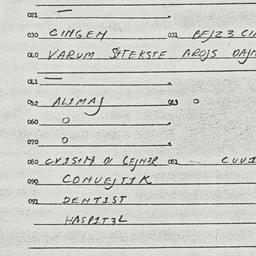 021 —
030 CINGEM 031 BEJZ3 CI
040 VARUM SHTEKSTE AROJS DAJN
041 —
052 ALIMAJ 053 0
060 0
070 0
080 081 CUVI
090 CONVEJTIK
091 DENTIST
HASPIT3L